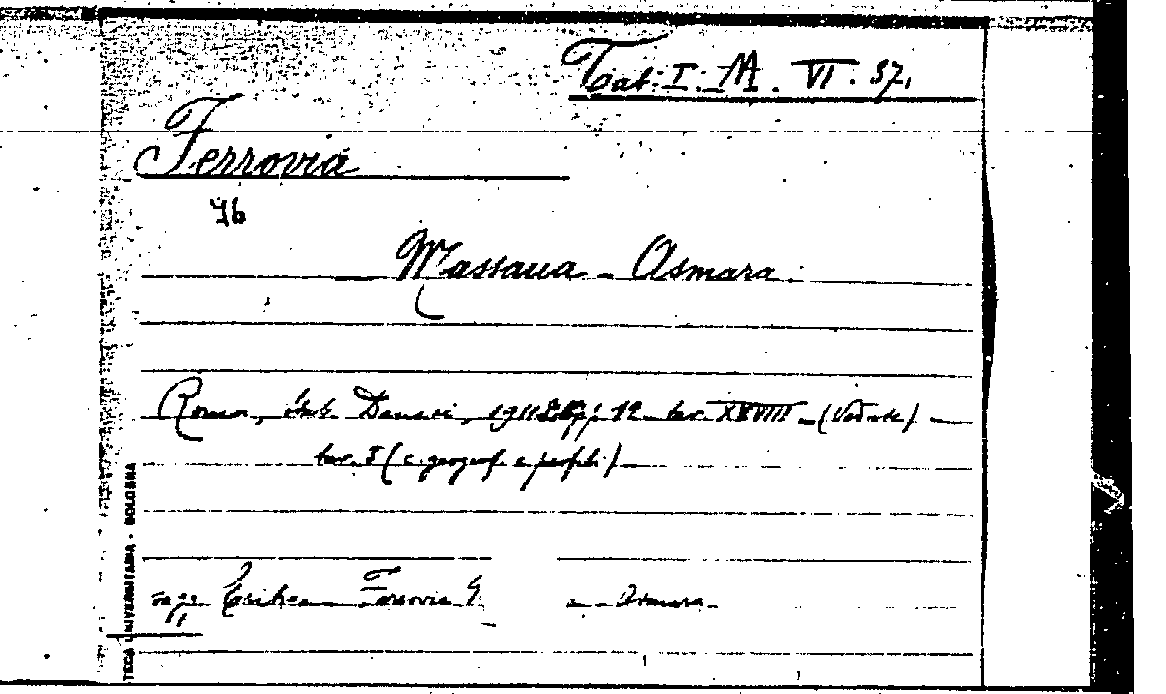 Tab: I. M. VI. 37.
Ferrovia
46
Massaua - Asmara.
Roma, Danesi, 1911 pp. 12 tav. XXVIII - (Vedute) -
tav. 5 (c. geograf. e profili)
sogg. Eritrea Ferrovia - Asmara
TECA UNIVERSITARIA - BOLOGNA